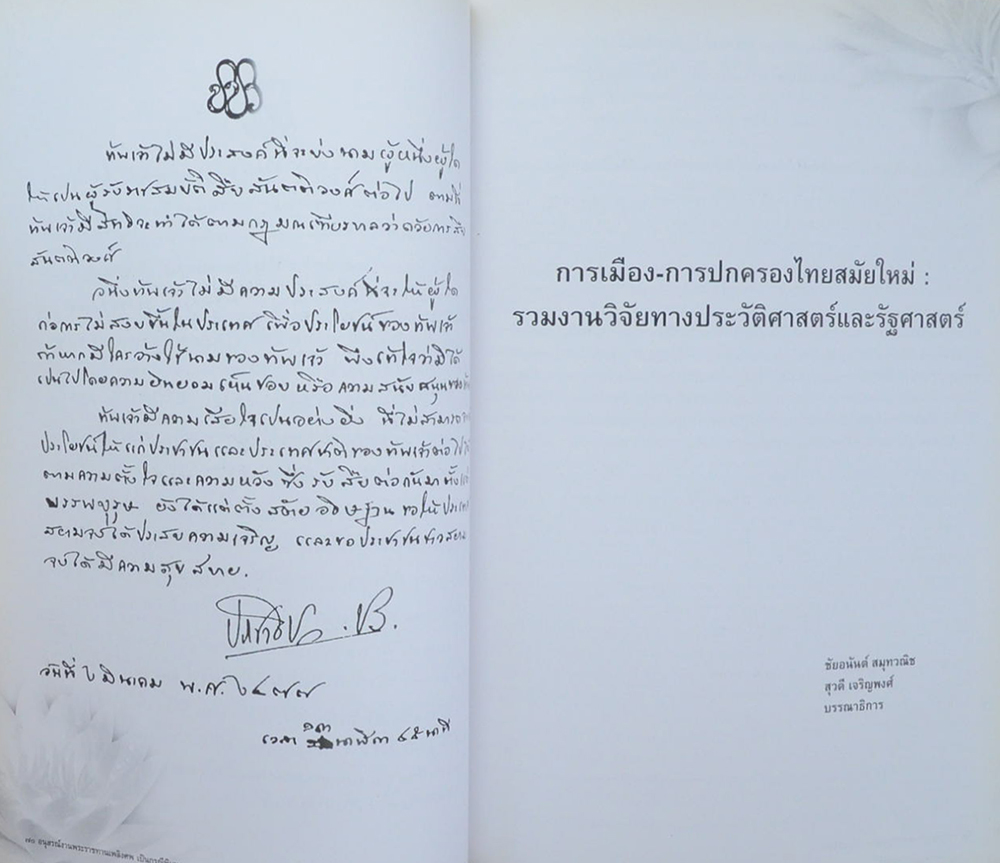 ข้าพเจ้าไม่มีประสงค์ที่จะบ่งนามผู้หนึ่งผู้ใด
ให้เป็นผู้รับราชสมบัติสืบสันตติวงศ์ต่อไป ตามที่
ข้าพเจ้ามีสิทธิจะทำได้ตามกฎมณเฑียรบาลว่าด้วยการสืบ
สันตติวงศ์
อนึ่งข้าพเจ้าไม่มีความประสงค์ที่จะให้ผู้ใด
ก่อการไม่สงบขึ้นในประเทศ เพื่อประโยชน์ของข้าพเจ้า
ถ้าหากมีใครอ้างใช้นามของข้าพเจ้า พึงเข้าใจว่ามิได้
เป็นไปโดยความยินยอมเห็นชอบ หรือความสนับสนุนของ
ข้าพเจ้ามีความเสียใจเป็นอย่างยิ่ง ที่ไม่สามารถ
ประโยชน์ให้แก่ประชาชนและประเทศชาติของข้าพเจ้าต่อไป
ตามความตั้งใจและความหวัง ซึ่งรับสืบต่อกันมาตั้งแต่
บรรพบุรุษ ยังได้แต่ตั้งสัตย์อธิษฐาน ขอให้ประเทศ
สยามจงได้ประสบความเจริญ และขอประชาชนชาวสยาม
จงได้มีความสุขสบาย.
ประชาธิปก . ปร.
วันที่ ๒ มีนาคม พ.ศ. ๒๔๗๗
เวลา ๑๓ นาฬิกา ๔๕ นาที
๗๐ อนุสรณ์งานพระราชทานเพลิงศพ
การเมือง-การปกครองไทยสมัยใหม่ :
รวมงานวิจัยทางประวัติศาสตร์และรัฐศาสตร์
ชัยอนันต์ สมุทวณิช
สุวดี เจริญพงศ์
บรรณาธิการ